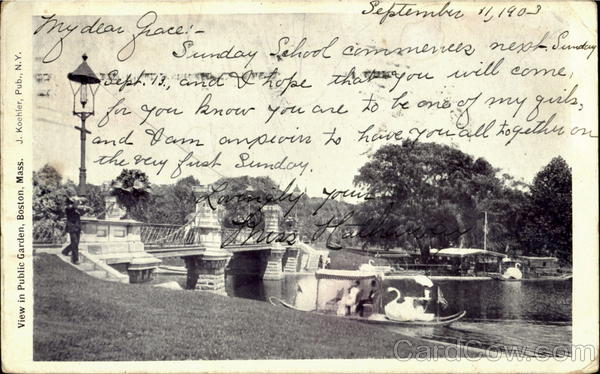 September 11, 1903
My dear Grace:-
Sunday School commences next Sunday
Sept. 13, and I hope that you will come,
for you know you are to be one of my girls,
and I am anxious to have you all together on
the very first Sunday.
Lovingly yours
Miss
View in Public Garden, Boston, Mass. J. Koehler, Pub., N.Y.
CardCow.com